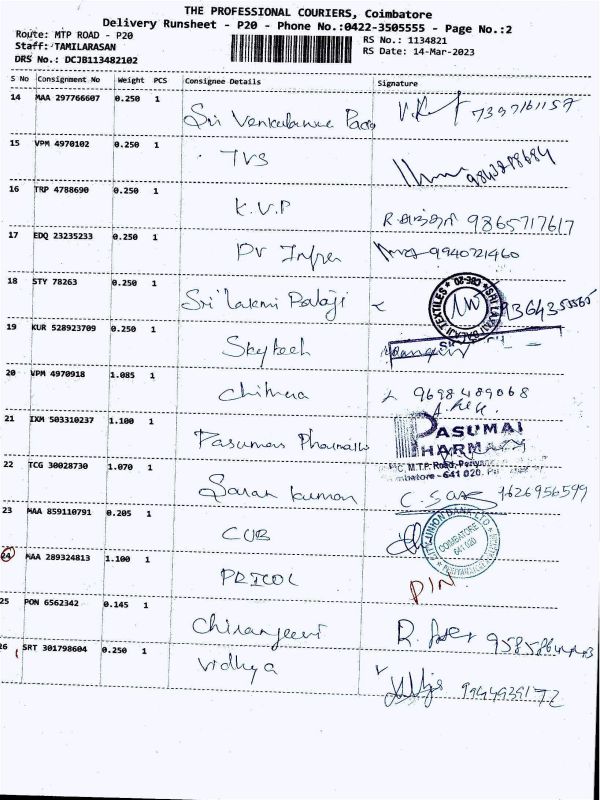 THE PROFESSIONAL COURIERS, Coimbatore
Delivery Runsheet - P20 - Phone No.:0422-3505555 - Page No.:2
Route: MTP ROAD - P20
RS No.: 1134821
Staff: TAMILARASAN
RS Date: 14-Mar-2023
DRS No.: DCJB113482102
S No Consignment No Weight PCS Consignee Details Signature
14 MAA 297766607 0.250 1 Sri 7397161157
15 VPM 4970102 0.250 1 TVS
16 TRP 4788690 0.250 1 K.V.P 9865717617
17 EDQ 23235233 0.250 1 PV Infra 9940721460
18 STY 78263 0.250 1 Sri Lakmi Balaji
19 KUR 528923709 0.250 1 Skytech
20 VPM 4970918 1.085 1 Chithra 9698489068
21 IXM 503310237 1.100 1 Pasumai PASUMAI
PHARMACY
M.T.P. Road,
641 020.
22 TCG 30028730 1.070 1 Saran kumar 1626956599
23 MAA 859110791 0.205 1 CUB CITY UNION BANK LTD COIMBATORE
24 MAA 289324813 1.100 1 PRICOL DIN
25 PON 6562342 0.145 1 Chiranjeevi
26 SRT 301798604 0.250 1 Vidhya